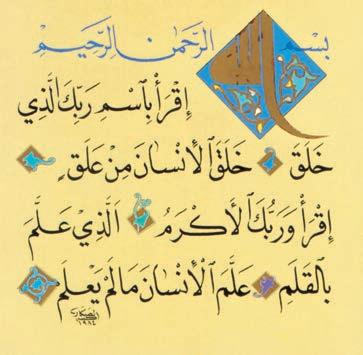 بِسْمِ اللهِ الرَّحْمٰنِ الرَّحِيْمِ
اِقْرَأْ بِاسْمِ رَبِّكَ الَّذِي
خَلَقَ خَلَقَ الْاِنْسَانَ مِنْ عَلَقٍ
اِقْرَأْ وَرَبُّكَ الْاَكْرَمُ اَلَّذِي عَلَّمَ
بِالْقَلَمِ عَلَّمَ الْاِنْسَانَ مَالَمْ يَعْلَمْ
الصكار
١٩٨٤